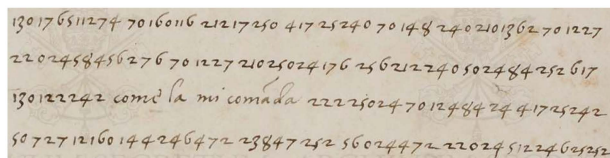 130176511274 70160116 212172504172524070148240210136270 1227
22024584562767012272102502417625621224050248425261 7
130122242 come la mi comāda 2222502470124842441725242
50727121601442464 72 2384725256024472 22024512246252 52